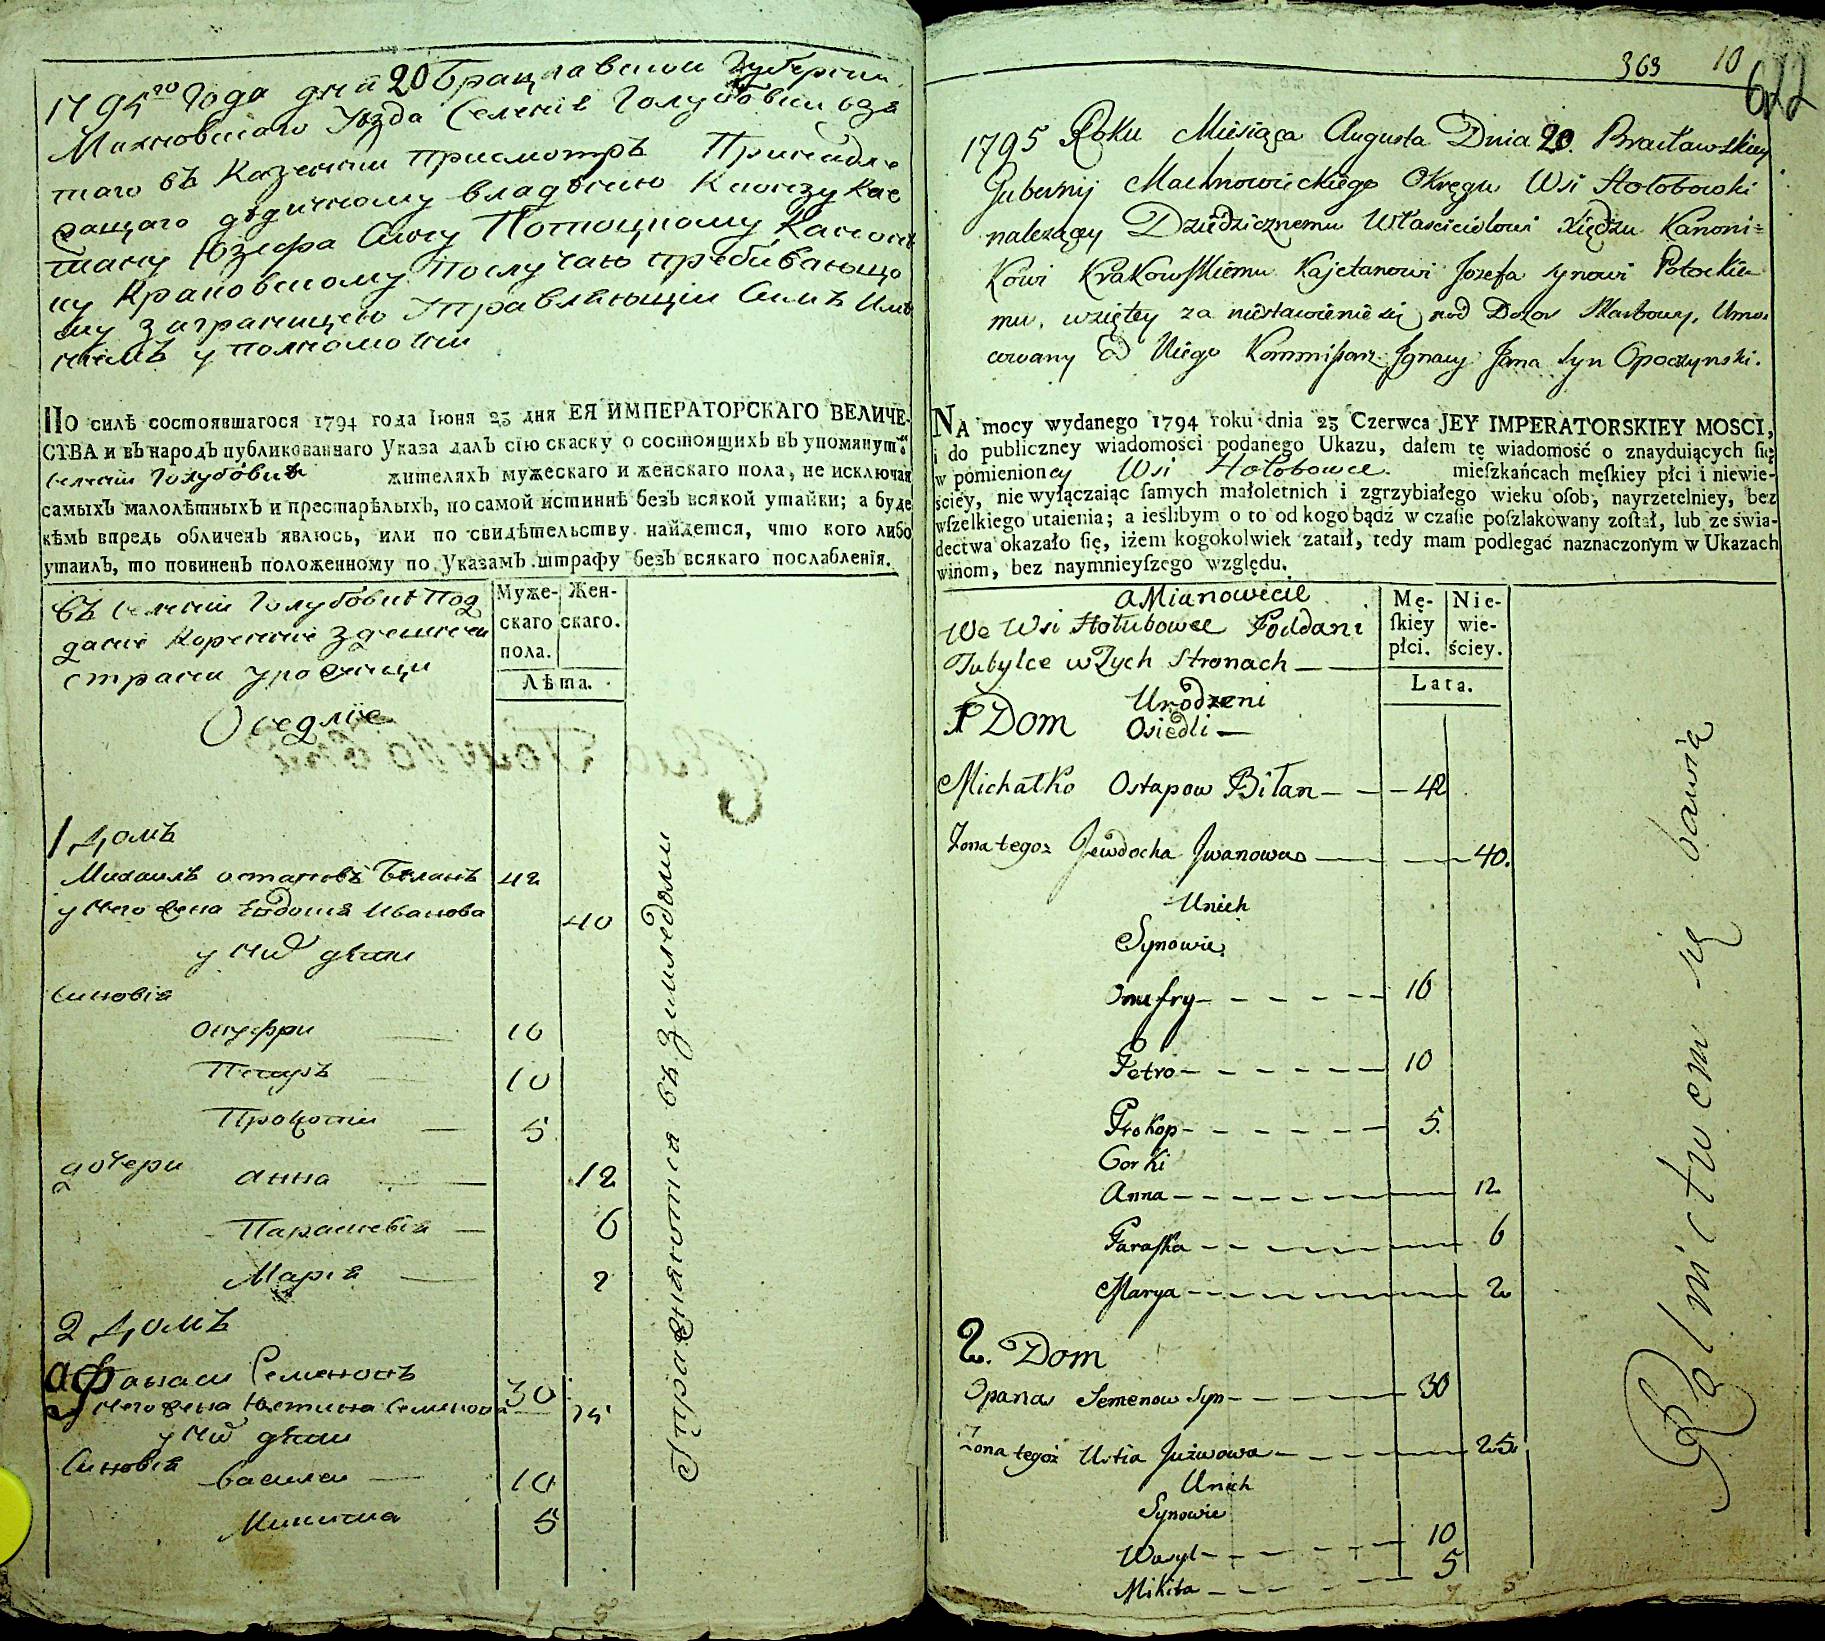 1795го Года дня 20 Брацлавской Губернии
Махновскаго Уезда Селения Голубовки взя
таго въ Казенный присмотръ Принадле
жащаго дедичному владению Ксондзу Кае
тану Юзефа Сыну Потоцкому Канони
ку Краковскому По случаю пребивающо
му заграницею Управляющий Симъ Име
ниемъ уполномочий
ПО силѣ состоявшагося 1794 года Іюня 23 дня ЕЯ ИМПЕРАТОРСКАГО ВЕЛИЧЕ-
СТВА и въ народъ публикованнаго Указа далъ сію скаску о состоящихъ въ упомянутѣ
селении Голубовке жителяхъ мужескаго и женскаго пола, не исключая
самыхъ малолѣтныхъ и престарѣлыхъ, по самой истиннѣ безъ всякой утайки; а буде
кѣмъ впредь обличенъ явлюсь, или по свидѣтельству найдется, что кого либо
утаилъ, то повиненъ положенному по Указамъ штрафу безъ всякаго послабленія.
Въ селении Голубовке Под
дание Коренние здешней
страни уроженци
Оседлие
Муже-
скаго
пола.
Жен-
скаго.
Лѣта.
1 Домъ
Михаилъ остаповъ Беланъ 42
у него жена Евдокия Иванова 40
у них дети
Синовия
онуфри 16
Петръ 10
Прокопи 5
дочери Анна 12
Параскевия 6
Мария 2
2 Домъ
Афанаси Семеновъ 30
у него жена Юстина Семенова 25
у них дети
Синовия Василей 10
Никита 5
Упражняются въ земледелии
7 5
363 10
622
1795 Roku Miesiąca Augusta Dnia 20. Bracławskiey
Gubernij Machnowieckiego Okręgu Wsi Hołobowki
należącey Dziedzicznemu Właścicielowi Xiędzu Kanoni=
Kowi Krakowskiemu Kajetanowi Jozefa synowi Potockie
mu, wziętey za niestawienie się pod Dozor Skarbowy, Umo-
cowany od Niego Kommissarz Ignacy Jana Syn Opoczynski.
NA mocy wydanego 1794 roku dnia 23 Czerwca JEY IMPERATORSKIEY MOSCI,
i do publiczney wiadomości podanego Ukazu, dałem tę wiadomość o znayduiących się
w pomienioney Wsi Hołobowce. mieſzkańcach męſkiey płci i niewie-
ściey, nie wyłączaiąc ſamych małoletnich i zgrzybiałego wieku oſob, nayrzetelniey, bez
wſzelkiego utaienia; a ieślibym o to od kogo bądź w czaſie poſzlakowany zoſtał, lub ze świa-
dectwa okazało się, iżem kogokolwiek zataił, tedy mam podlegać naznaczonym w Ukazach
winom, bez naymnieyſzego względu.
a Mianowicie
We Wsi Hołubowce Poddani
Tubylce w Tych Stronach
Urodzeni
Osiedli
Mę-
ſkiey
płci.
Nie-
wie-
ściey.
Lata.
1 Dom
Michałko Ostapow Biłan 42
Żona tegoż Jewdocha Jwanowa 40.
U nich
Synowie
Onufry 16
Petro 10
Prokop 5.
Corki
Anna 12
Paraſka 6
Marya 2
2. Dom
Opanas Semenow Syn 30
Żona tegoż Ustia Juźwowa 25
U nich
Synowie
Wasyl 10
Mikita 5
Rolnictwem się bawią
7 5